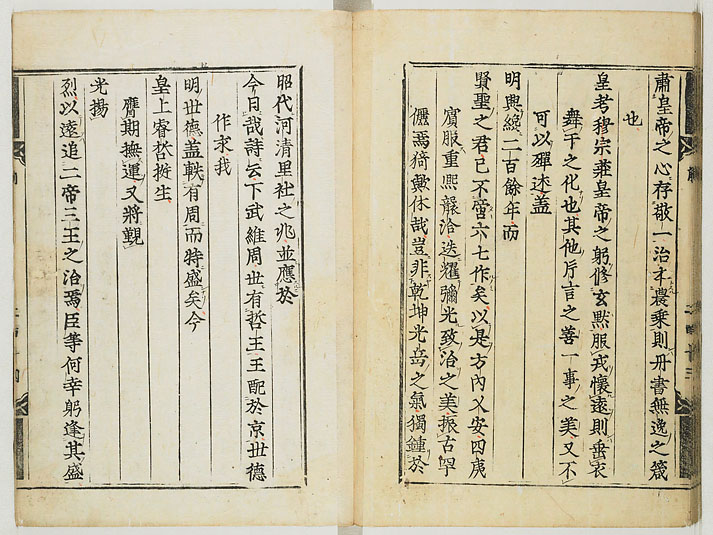 肅皇帝之心存敬一治本農桒則丹書無逸之箴
也
皇考穆宗莊皇帝之躬修玄默服戎懷遠則垂衣
舞干之化也其他片言之善一事之美又不
可以殫述盖
明興纔二百餘年而
賢聖之君已不啻六七作矣以是方內乂安四夷
賓服重熙襲洽迭耀彌光致治之美振古罕
儷焉猗歟休哉豈非乾坤光岳之氣獨鍾於
昭代河清里社之兆並應於
今日哉詩云下武維周世有哲王王配於京世德
作求我
明世德盖軼有周而特盛矣今
皇上睿哲挺生
膺期撫運又將覲
光揚
烈以遠追二帝三王之治焉臣等何幸躬逢其盛